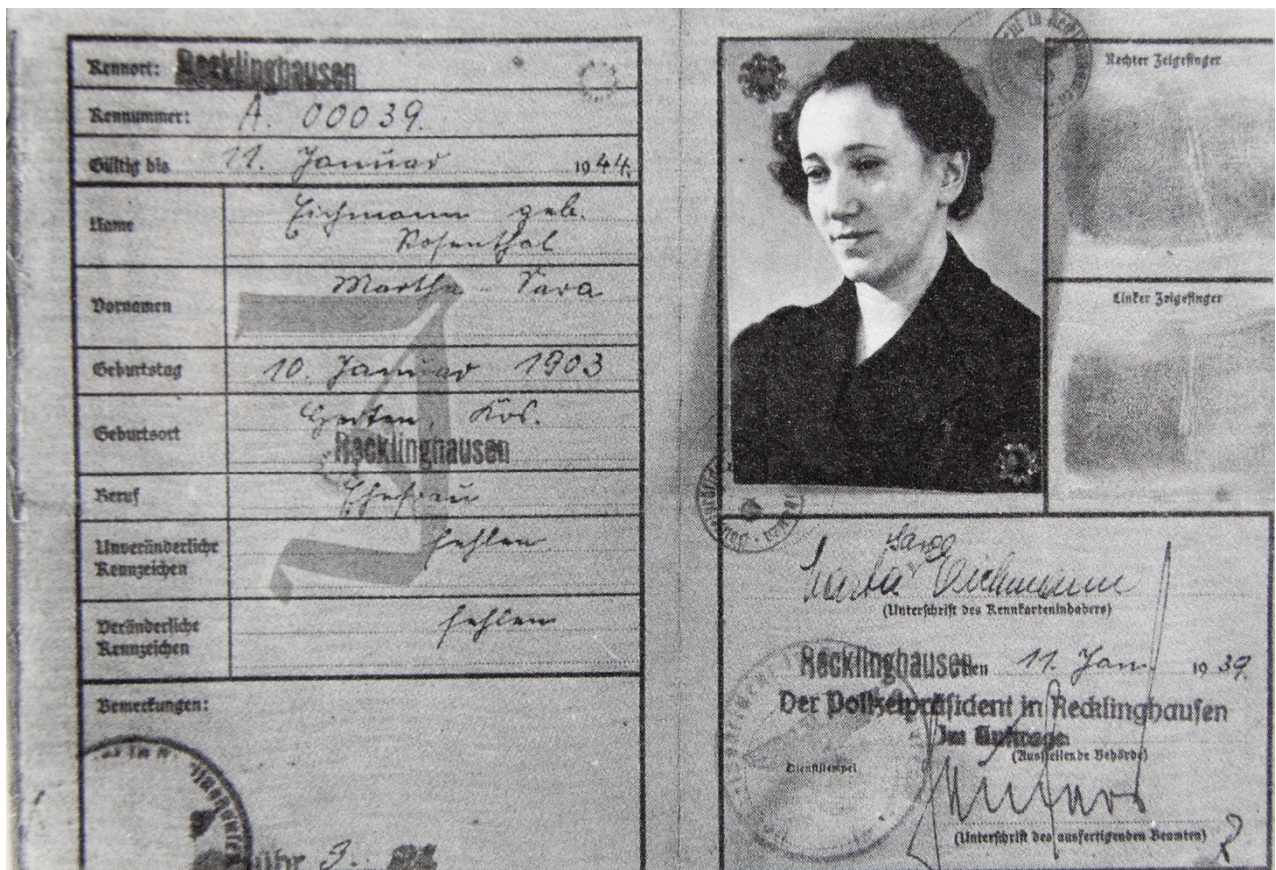 Kennort: Recklinghausen
Kennummer: A. 00039.
Gültig bis 11. Januar 1944.
Name Eichmann geb.
Rosenthal
Vornamen Martha Sara
Geburtstag 10. Januar 1903
Geburtsort Herten, Krs.
Recklinghausen
Beruf Ehefrau
Unveränderliche Kennzeichen fehlen
Veränderliche Kennzeichen fehlen
Bemerkungen:
3.
Rechter Zeigefinger
Linker Zeigefinger
Sara
Eichmann
(Unterschrift des Kennkarteninhabers)
Recklinghausen den 11. Jan. 1939.
Der Polizeipräsident in Recklinghausen
Im Auftrage:
(Ausstellende Behörde)
Dienststempel
(Unterschrift des ausfertigenden Beamten)